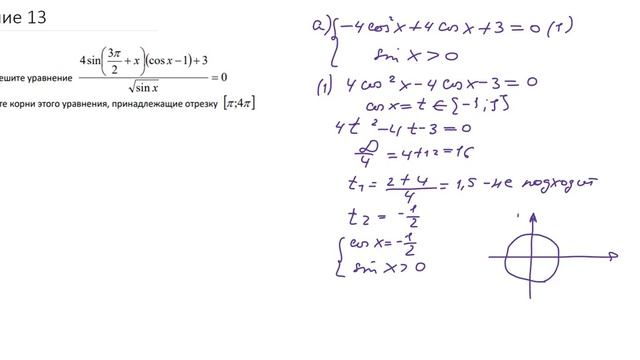 ие 13
ешите уравнение \frac{4\sin\left(\frac{3\pi}{2}+x\right)(\cos x-1)+3}{\sqrt{\sin x}}=0
те корни этого уравнения, принадлежащие отрезку [π;4π]
а) { -4cos²x+4cosx+3=0 (1)
sin x>0
(1) 4cos²x-4cosx-3=0
cosx=t∈[-1;1]
4t²-4t-3=0
D/4=4+12=16
t₁=\frac{2+4}{4}=1,5-не подходит
t₂=-\frac{1}{2}
{ cosx=-\frac{1}{2}
sin x>0